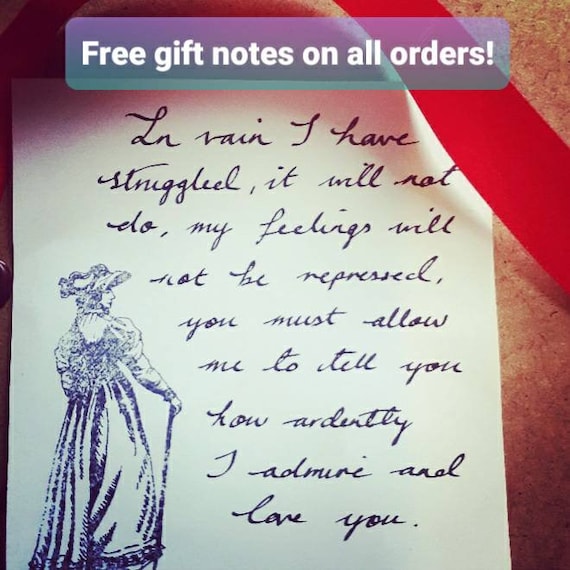 Free gift notes on all orders!
In vain I have
struggled, it will not
do, my feelings will
not be repressed,
you must allow
me to tell you
how ardently
I admire and
love you.